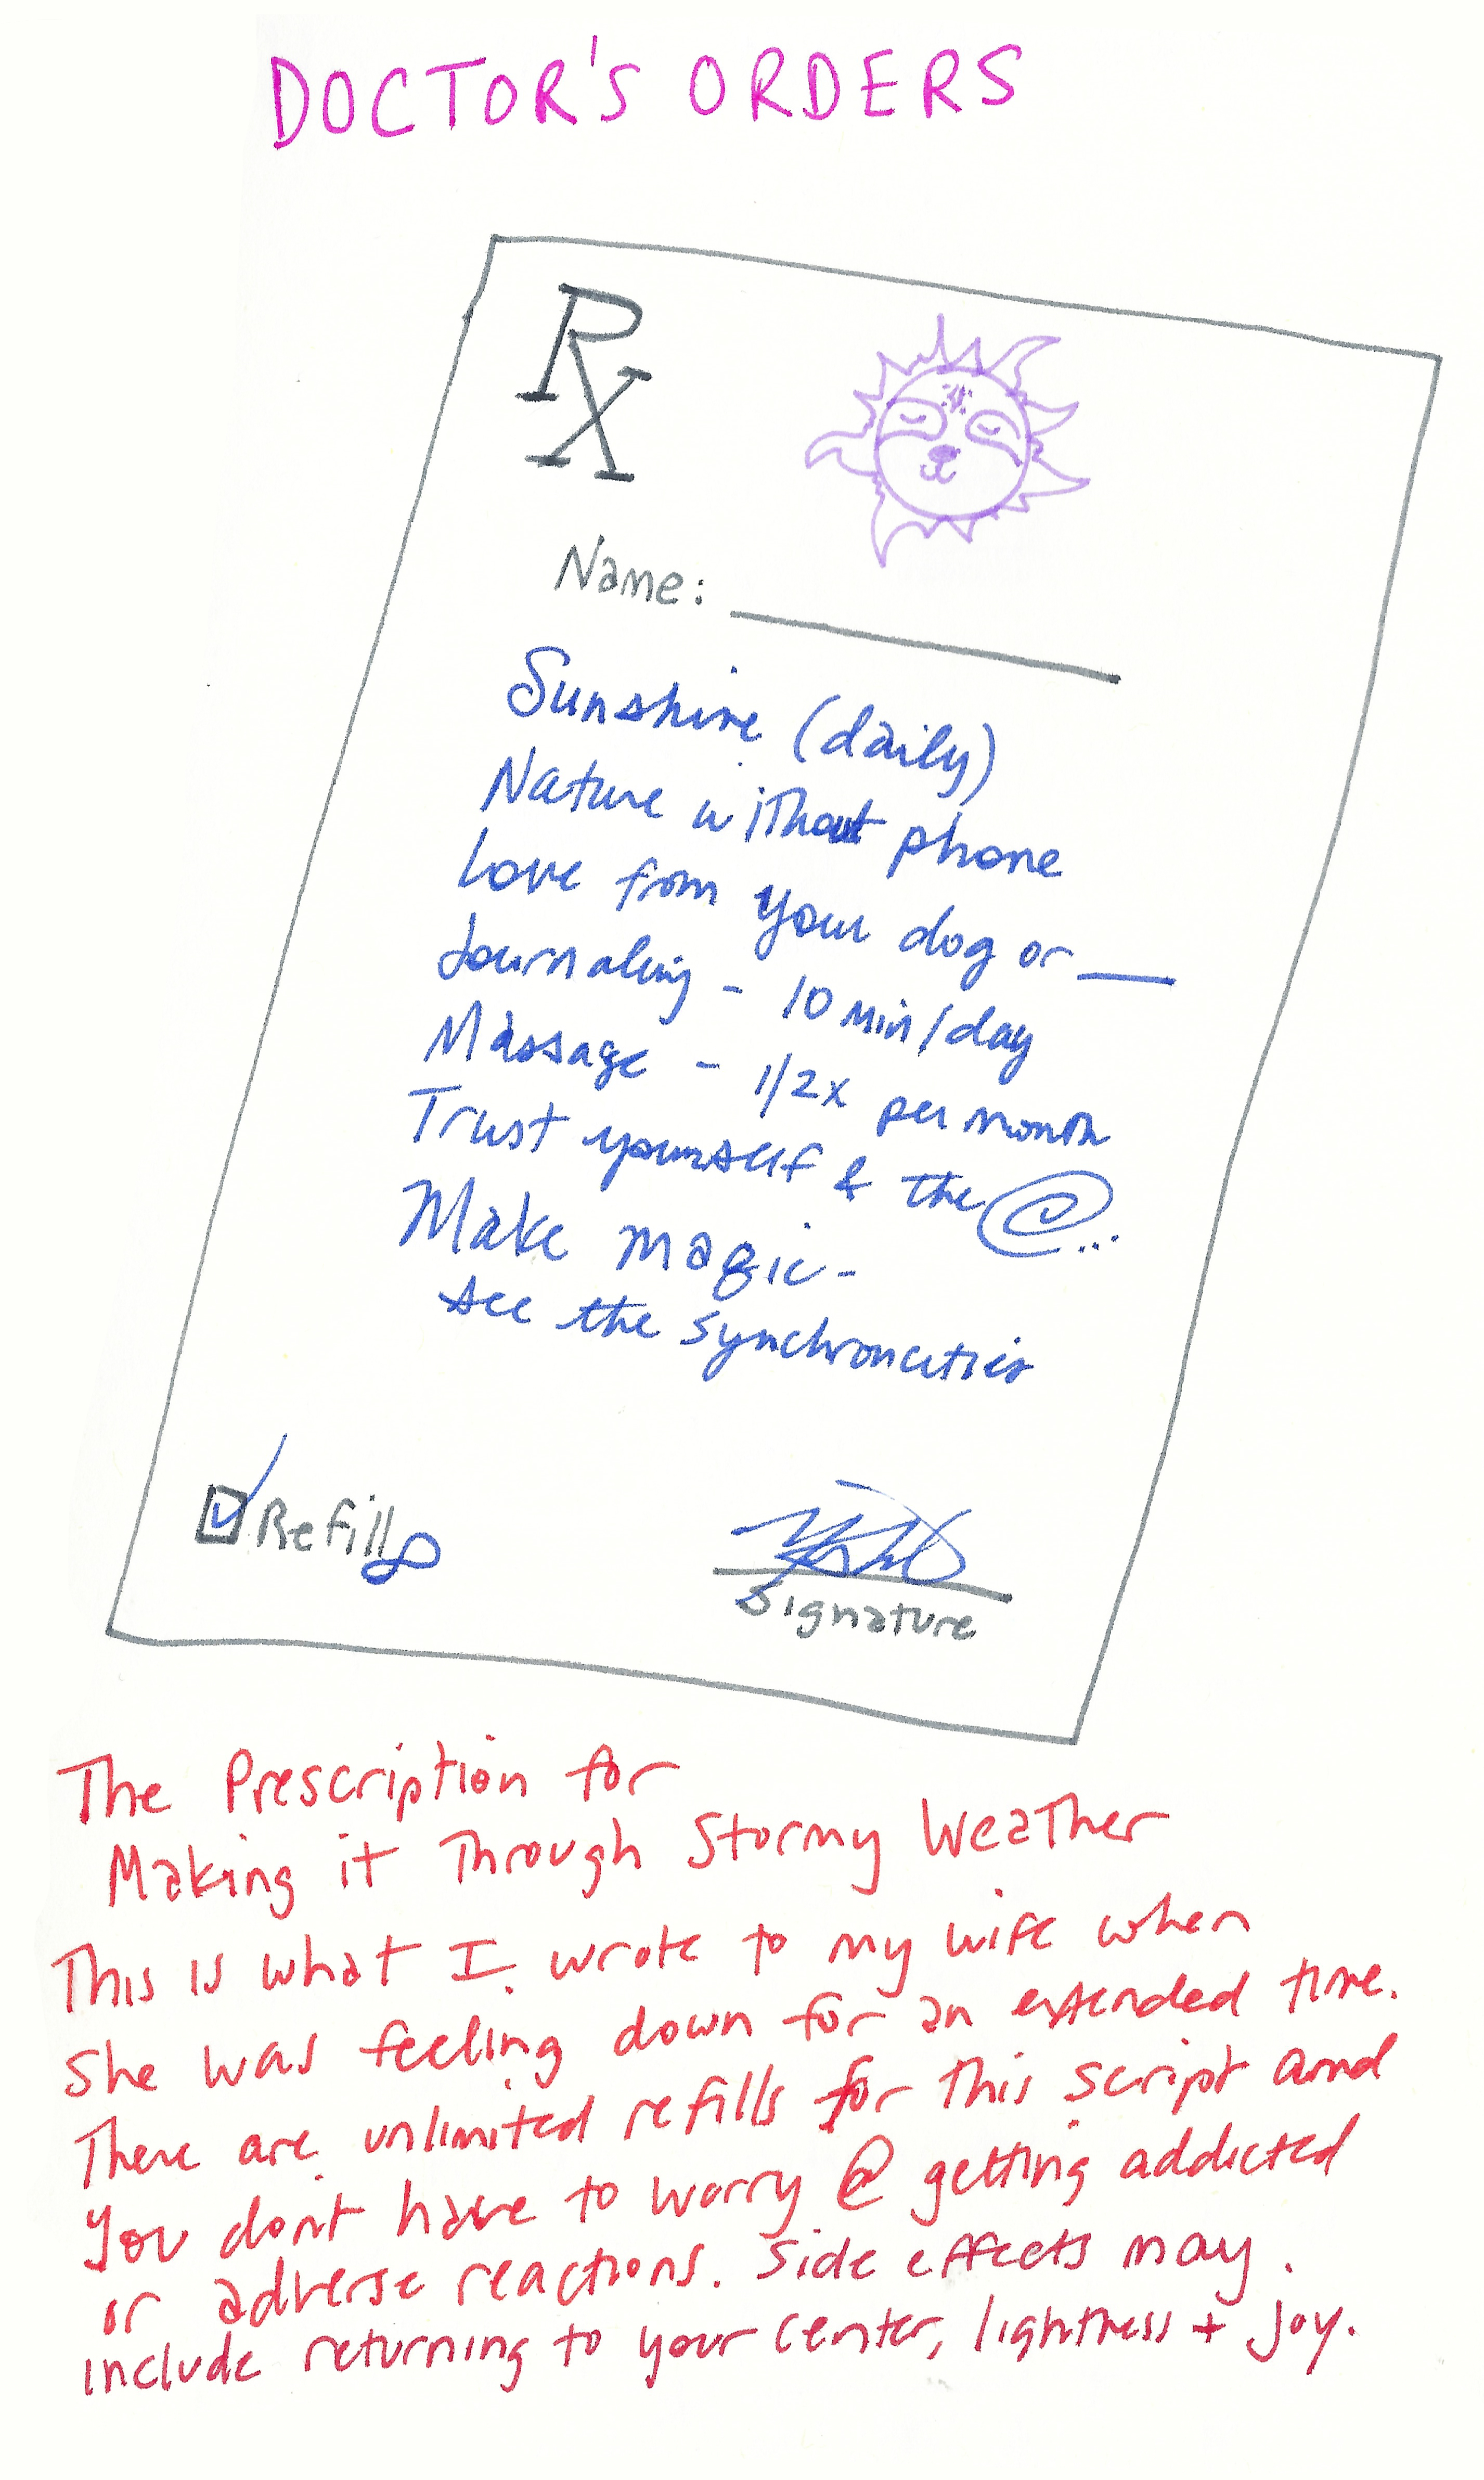 DOCTOR'S ORDERS
Rx
Name: ____
Sunshine (daily)
Nature without phone
Love from your dog or ____
Journaling - 10 min/day
Massage - 1/2x per month
Trust yourself & the @...
Make magic-
see the synchroncities
Refill ∞
Signature
The Prescription for
Making it Through Stormy Weather
This is what I wrote to my wife when
she was feeling down for an extended time.
There are unlimited refills for this script and
you don't have to worry @ getting addicted
or adverse reactions. Side effects may
include returning to your center, lightness + joy.